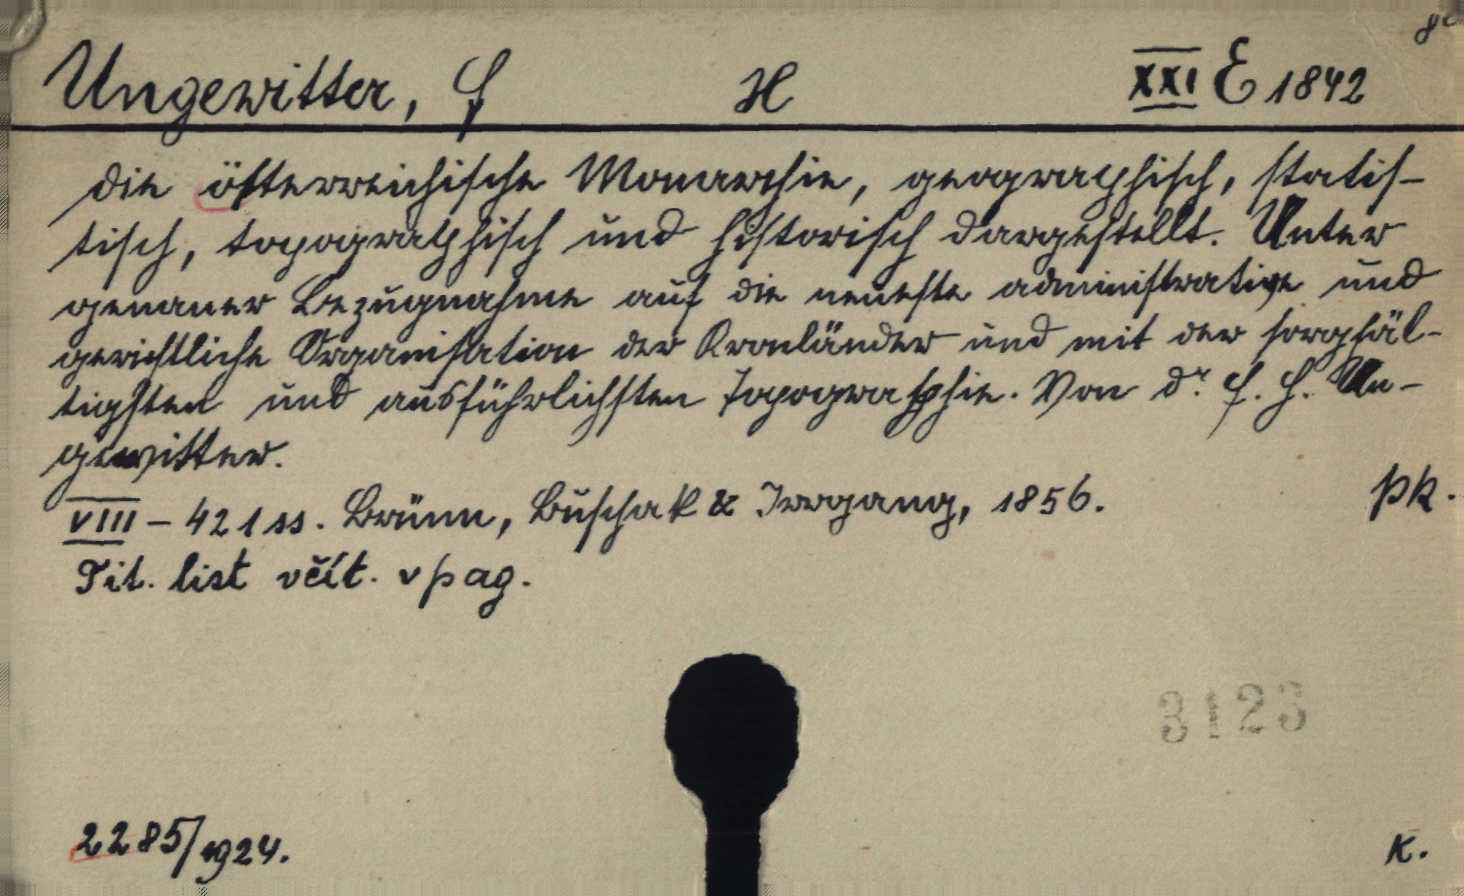 8°
Ungewitter, F H XXI E 1842
Die österreichische Monarchie, geographisch, statis-
tisch, topographisch und historisch dargestellt. Unter
genauer Bezugnahme auf die neueste administrative und
gerichtliche Organisation der Kronländer und mit der sorgfäl-
tigsten und ausführlichsten Topographie. Von Dr. F. H. Un-
gewitter.
VIII – 421 ss. Brünn, Buschak & Irrgang, 1856. pk.
Tit. list včít. v pag.
3123
2285/1924. K.